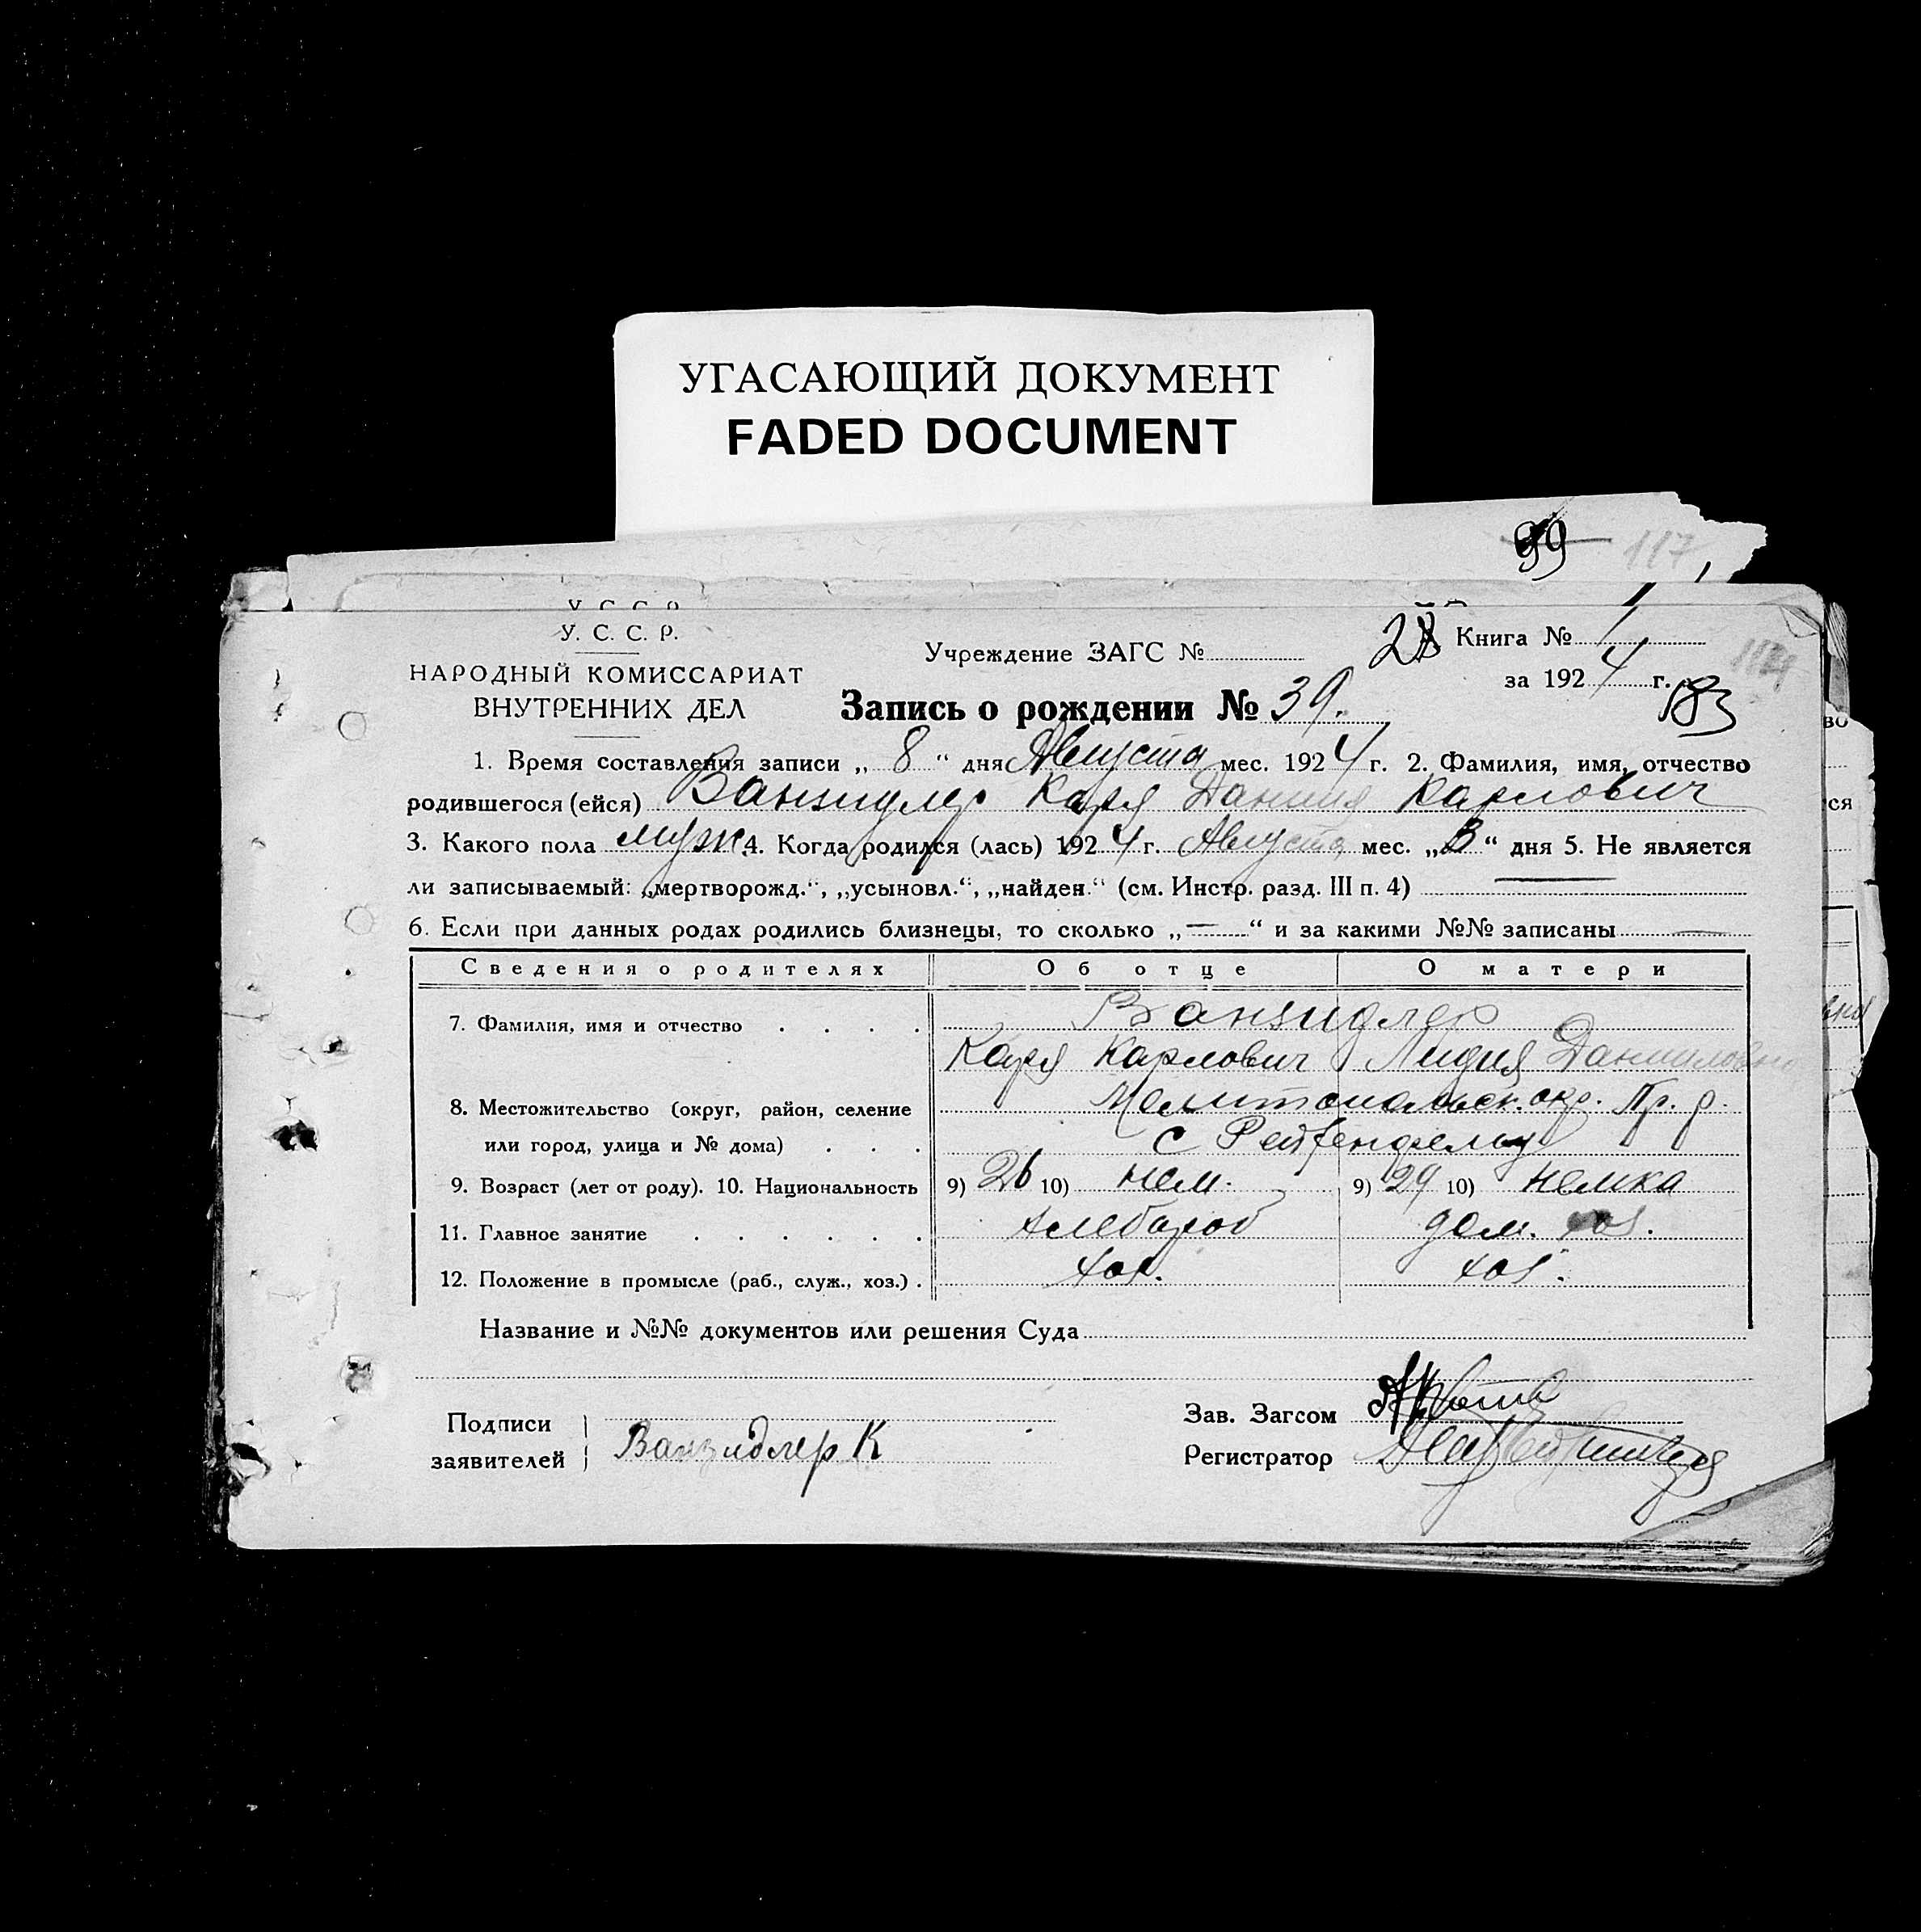 УГАСАЮЩИЙ ДОКУМЕНТ
FADED DOCUMENT
99 117
У. С. С. Р.
НАРОДНЫЙ КОМИССАРИАТ
ВНУТРЕННИХ ДЕЛ
Учреждение ЗАГС №
Книга № 1
за 1924 г.
183
Запись о рождении № 39.
1. Время составления записи „ 8 “ дня Августа мес. 1924 г. 2. Фамилия, имя, отчество
родившегося (ейся) Ванзидлер Карл Даниил Карлович
3. Какого пола муж. 4. Когда родился (лась) 1924 г. Августа мес. „3“ дня 5. Не является
ли записываемый: „мертворожд.“, „усыновл.“, „найден.“ (см. Инстр. разд. III п. 4) —
6. Если при данных родах родились близнецы, то сколько „—“ и за какими №№ записаны —
Сведения о родителях Об отце О матери
7. Фамилия, имя и отчество . . . . Ванзидлер
Карл Карлович Лидия Данииловна
8. Местожительство (округ, район, селение Мелитопольск. окр. Пр. р.
или город, улица и № дома) . . . с Рейхенфельд
9. Возраст (лет от роду). 10. Национальность 9) 26 10) нем. 9) 29 10) немка
11. Главное занятие . . . . . . хлебороб дом. хоз.
12. Положение в промысле (раб., служ., хоз.) . хоз. хоз.
Название и №№ документов или решения Суда
Подписи
заявителей Ванзидлер К
Зав. Загсом
Регистратор